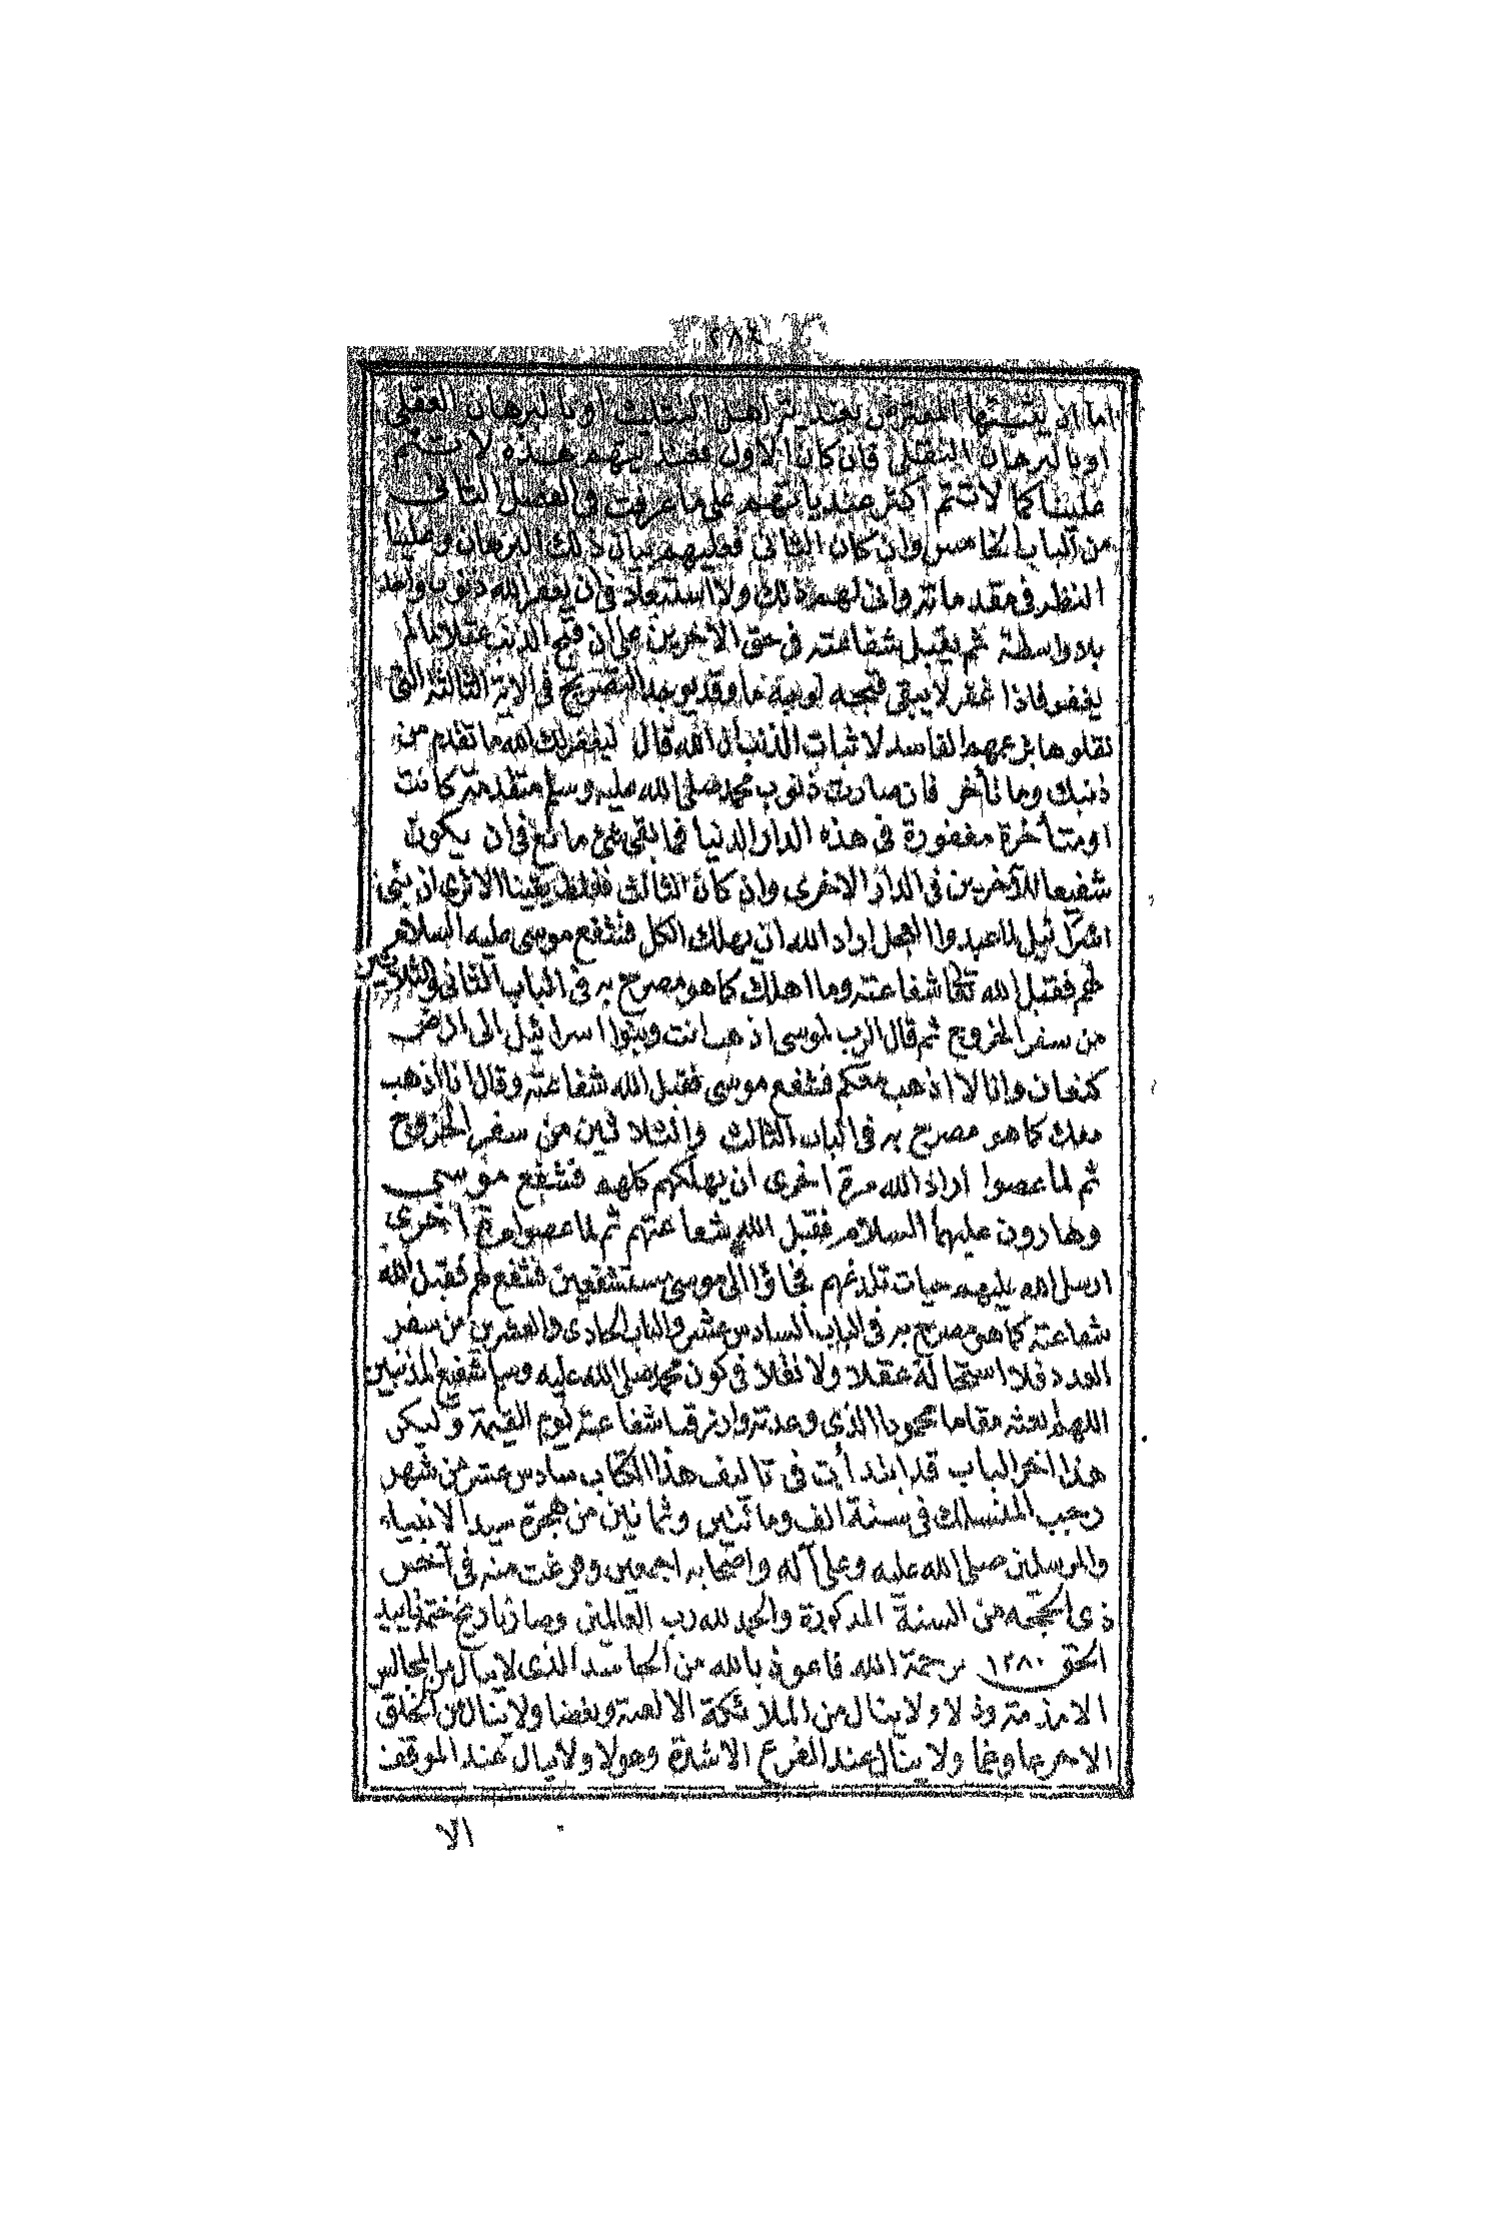 ٢٨٨
اما ان يثبتها المعترض بعندية اهل التثليث او بالبرهان العقلي
او بالبرهان النقلى فان كان الاول فعنديتهم هذه لا تتم
علينا كما لا تتم اكثر عندياتهم على ما عرفت فى الفصل الثانى
من الباب الخامس وان كان الثانى فعليهم بيان ذلك البرهان وعلينا
النظر فى مقدماته وانى لهم ذلك ولا استبعاد فى ان يغفر الله ذنوب واحد
بلا واسطة ثم يقبل شفاعته فى حق الآخرين على ان قبح الذنب عقلا ما لم
يغفر فاذا غفر لا يبقى قبحه لوجه ما وقد يوجد التصريح فى الاية الثالثة التى
نقلوها بزعمهم الفاسد لاثبات الذنب ان الله قال ليغفر لك الله ما تقدم من
ذنبك وما تأخر فان صارت ذنوب محمد صلى الله عليه وسلم متقدمة كانت
او متأخرة مغفورة فى هذه الدار الدنيا فما بقى شئ مانع فى ان يكون
شفيعا للآخرين فى الدار الاخرى وان كان الثالث فغلط يقينا الا ترى ان بنى
اسرائيل لما عبدوا العجل اراد الله ان يهلك الكل فشفع موسى عليه السلام
لهم فقبل الله تعالى شفاعته وما اهلك كما هو مصرح به فى الباب الثانى والثلاثين
من سفر الخروج ثم قال الرب لموسى اذهب انت وبنوا اسرائيل الى ارض
كنعان وانا لا اذهب معكم فشفع موسى فقبل الله شفاعته وقال انا اذهب
معك كما هو مصرح به فى الباب الثالث والثلاثين من سفر الخروج
ثم لما عصوا اراد الله مرة اخرى ان يهلكهم كلهم فشفع موسى
وهارون عليهما السلام فقبل الله شفاعتهم ثم لما عصوا مرة اخرى
ارسل الله عليهم حيات تلدغهم فجاؤا الى موسى مستشفعين فشفع لهم فقبل الله
شفاعته كما هو مصرح به فى الباب السادس عشر والباب الحادى والعشرين من سفر
العدد فلا استحالة عقلا ولا نقلا فى كون محمد صلى الله عليه وسلم شفيع المذنبين
اللهم ابعثه مقاما محمودا الذى وعدته وارزقنا شفاعته يوم القيمة وليكن
هذا اخر الباب قد ابتدأت فى تاليف هذا الكتاب سادس عشر من شهر
رجب المنسلك فى سنة الف ومائتين وثمانين من هجرة سيد الانبياء
والمرسلين صلى الله عليه وعلى آله واصحابه اجمعين وفرغت منه فى آخر
ذى الحجة من السنة المذكورة والحمد لله رب العالمين وصار تاريخ ختمه تاييد
الحق ١٢٨٠ برحمة الله فاعوذ بالله من الحاسد الذى لا ينال من المجالس
الا مذمة وذلا ولا ينال من الملائكة الا لعنة وبغضا ولا ينال من الخلق
الا جزعا وغما ولا ينال عند الفزع الا شدة وهولا ولا ينال عند الموقف
الا